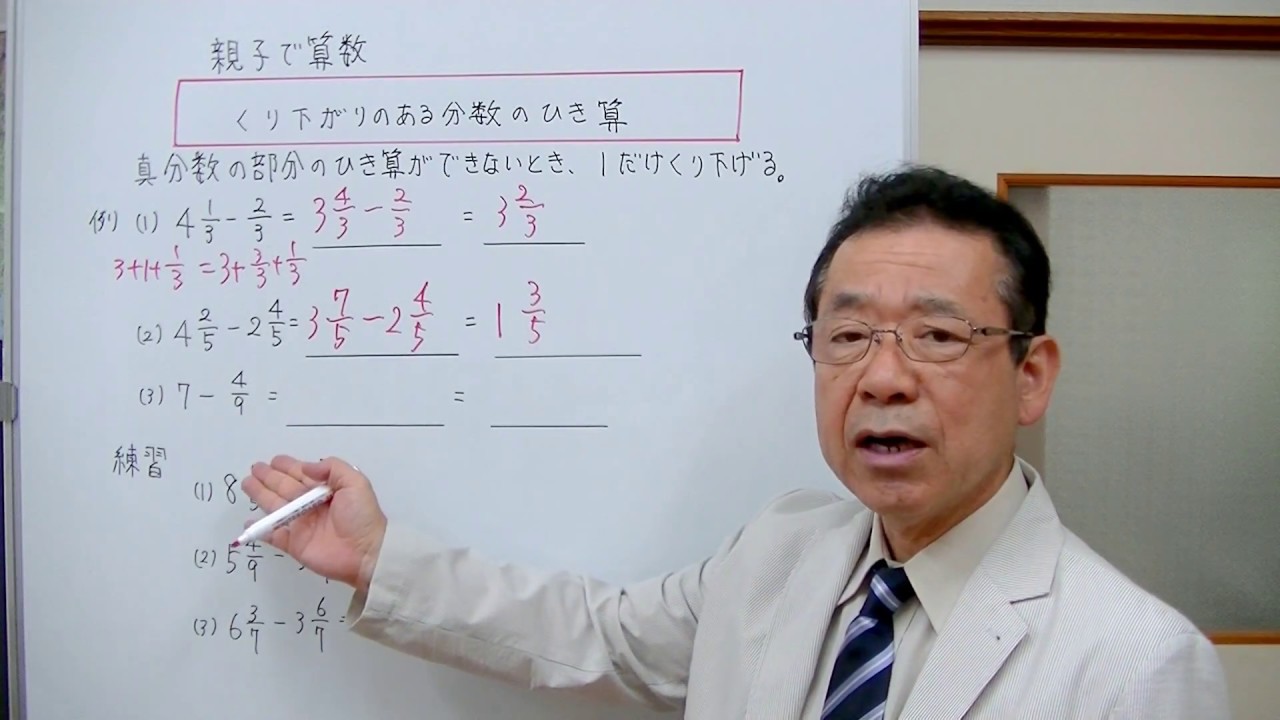 親子で算数
くり下がりのある分数のひき算
真分数の部分のひき算ができないとき、1だけくり下げる。
例) (1) 4 1/3 - 2/3 = 3 4/3 - 2/3 = 3 2/3
3+1+1/3 = 3+3/3+1/3
(2) 4 2/5 - 2 4/5 = 3 7/5 - 2 4/5 = 1 3/5
(3) 7 - 4/9 = =
練習
(1) 8
(2) 5 4/9 -
(3) 6 3/7 - 3 6/7 =